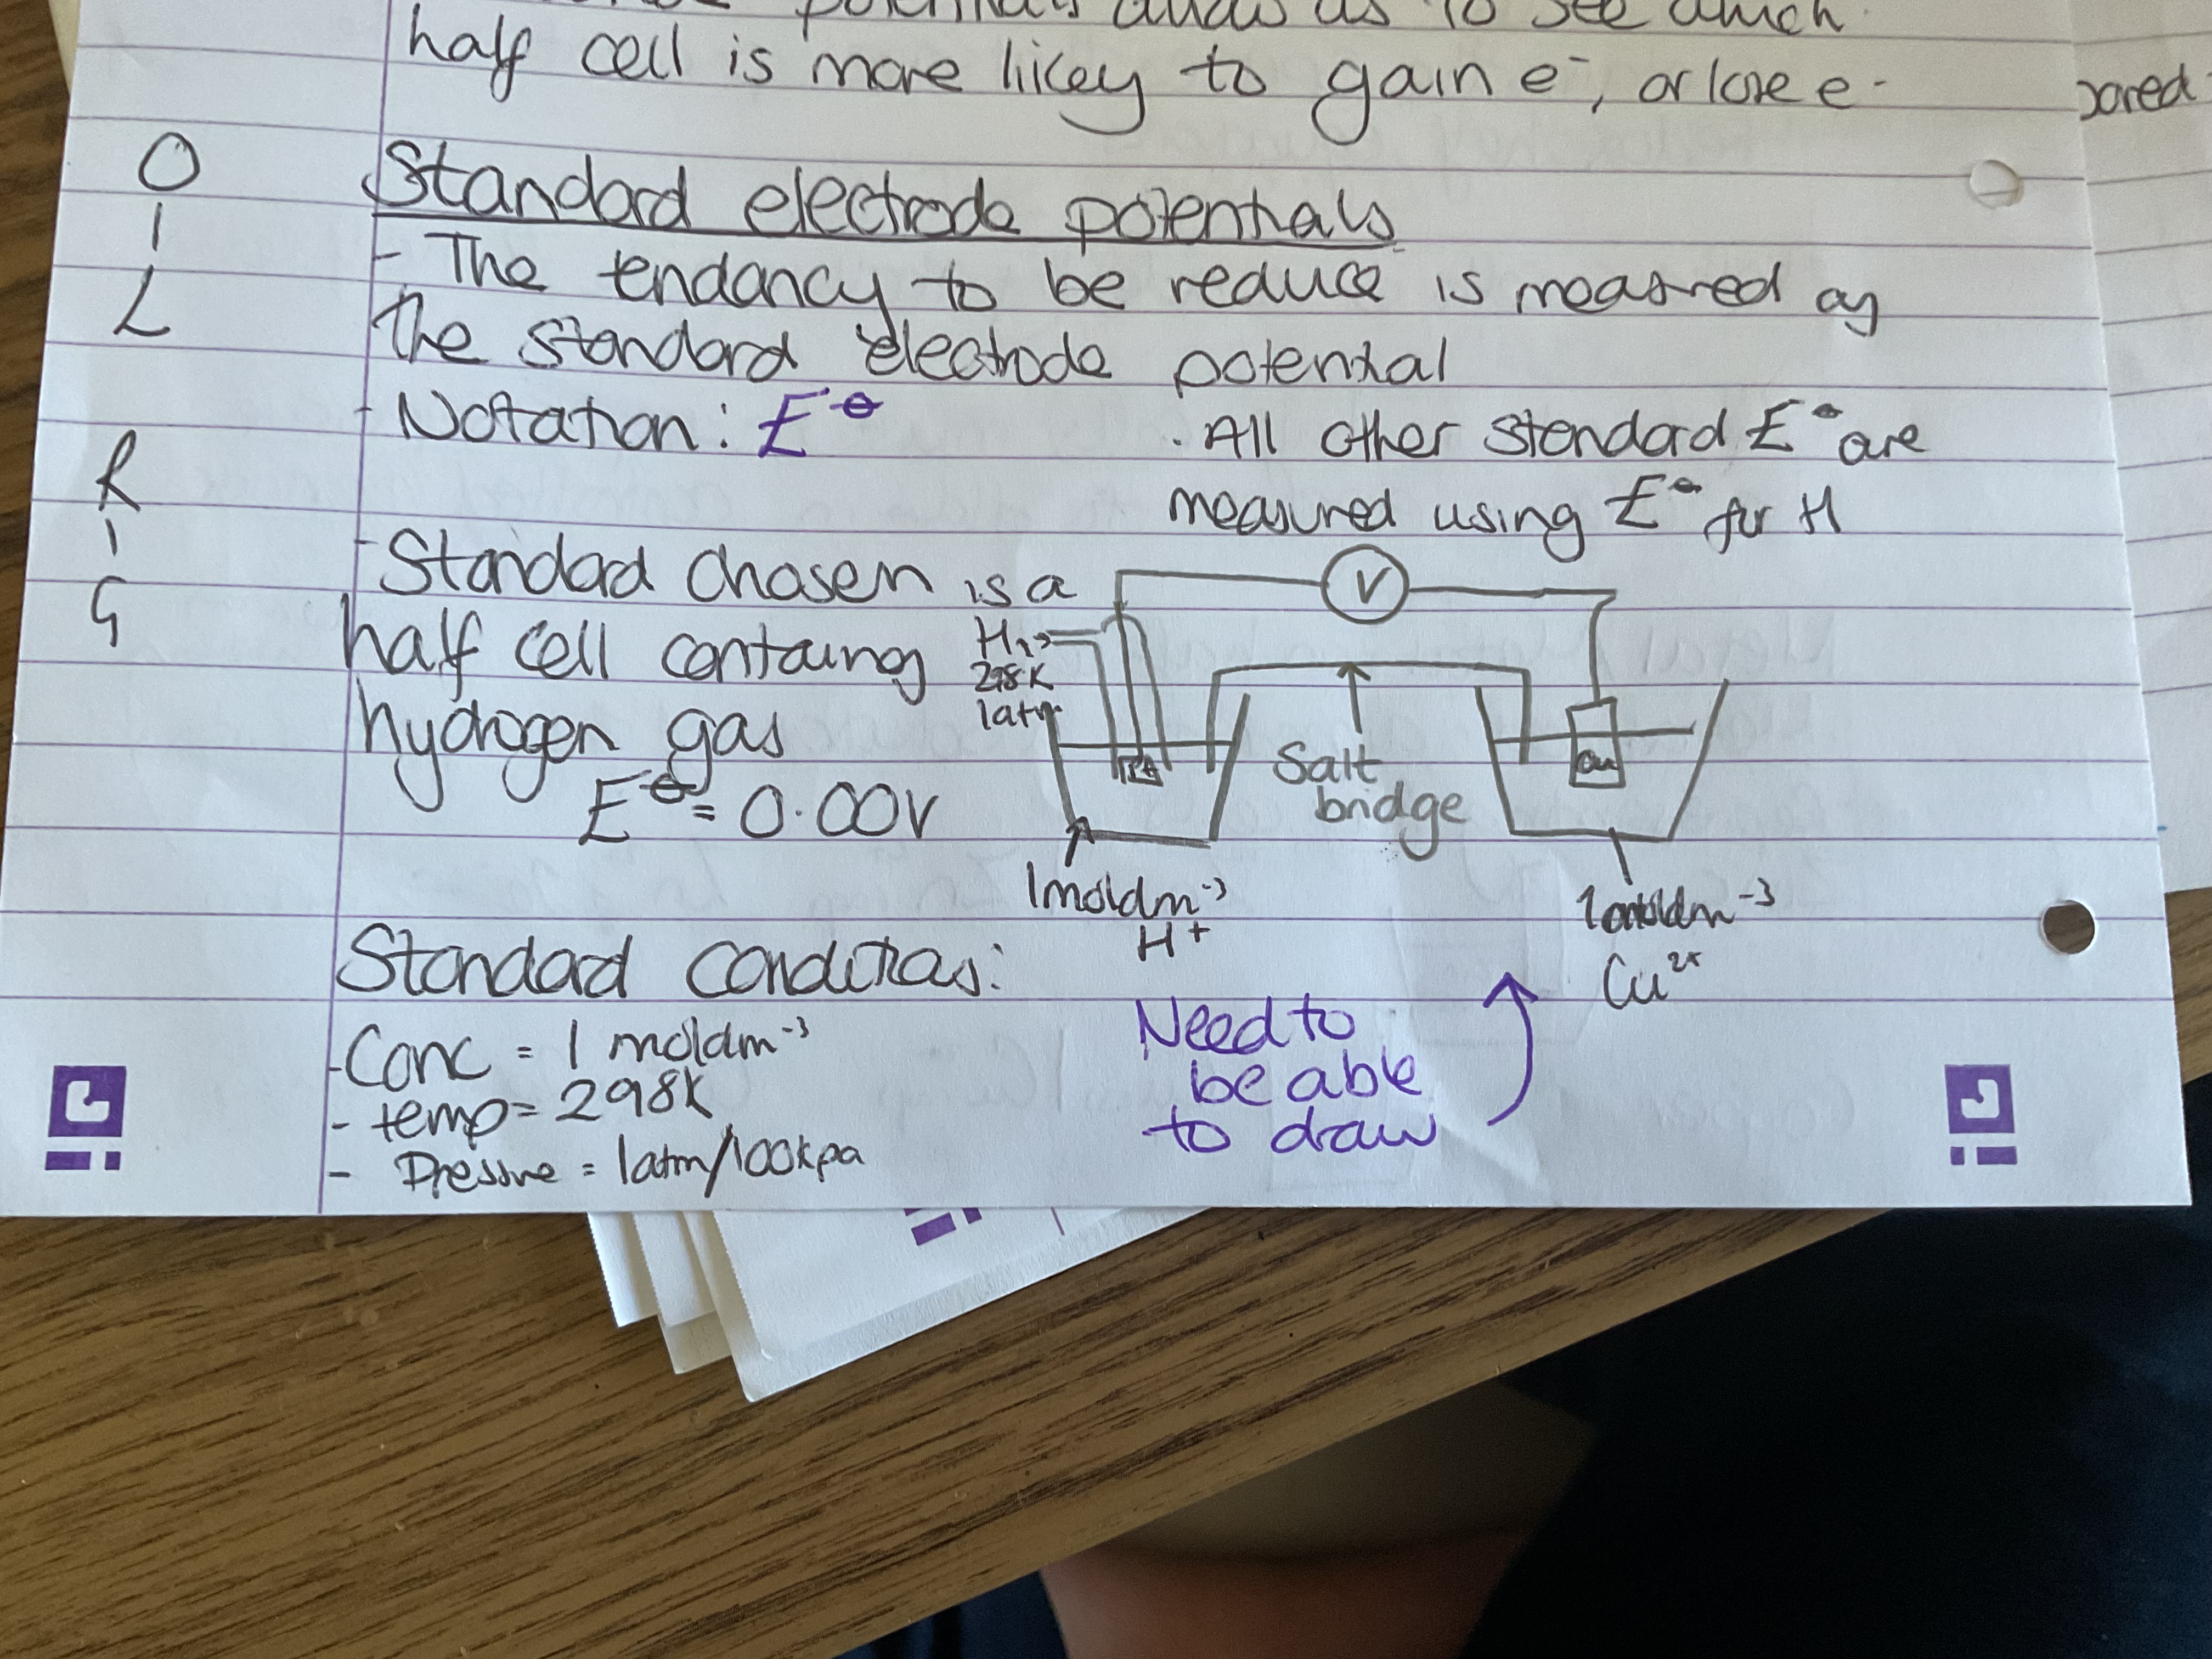 potentials allow us to see which
half cell is more likey to gain e⁻, or lose e⁻
pared
O
I
L
R
I
G
Standard electrode potentials
- The tendancy to be reduce is measured as
the standard electrode potential
- Notation: E⦵
· All other standard E⦵ are
measured using E⦵ for H
- Standard chosen is a
half cell containg
hydrogen gas
E⦵ = 0.00V
V
H₂
298K
1atm
Pt
Cu
Salt
bridge
1moldm⁻³
H⁺
1moldm⁻³
Cu²⁺
Standard conditions:
- Conc = 1 moldm⁻³
- temp = 298K
- Pressure = 1atm/100kpa
Need to
be able
to draw